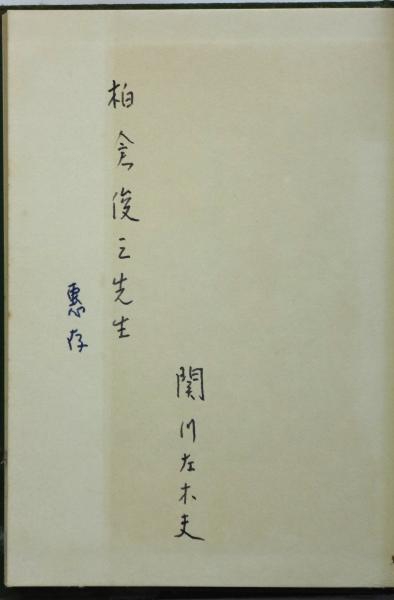 柏倉俊三先生
恵存
関川左木夫